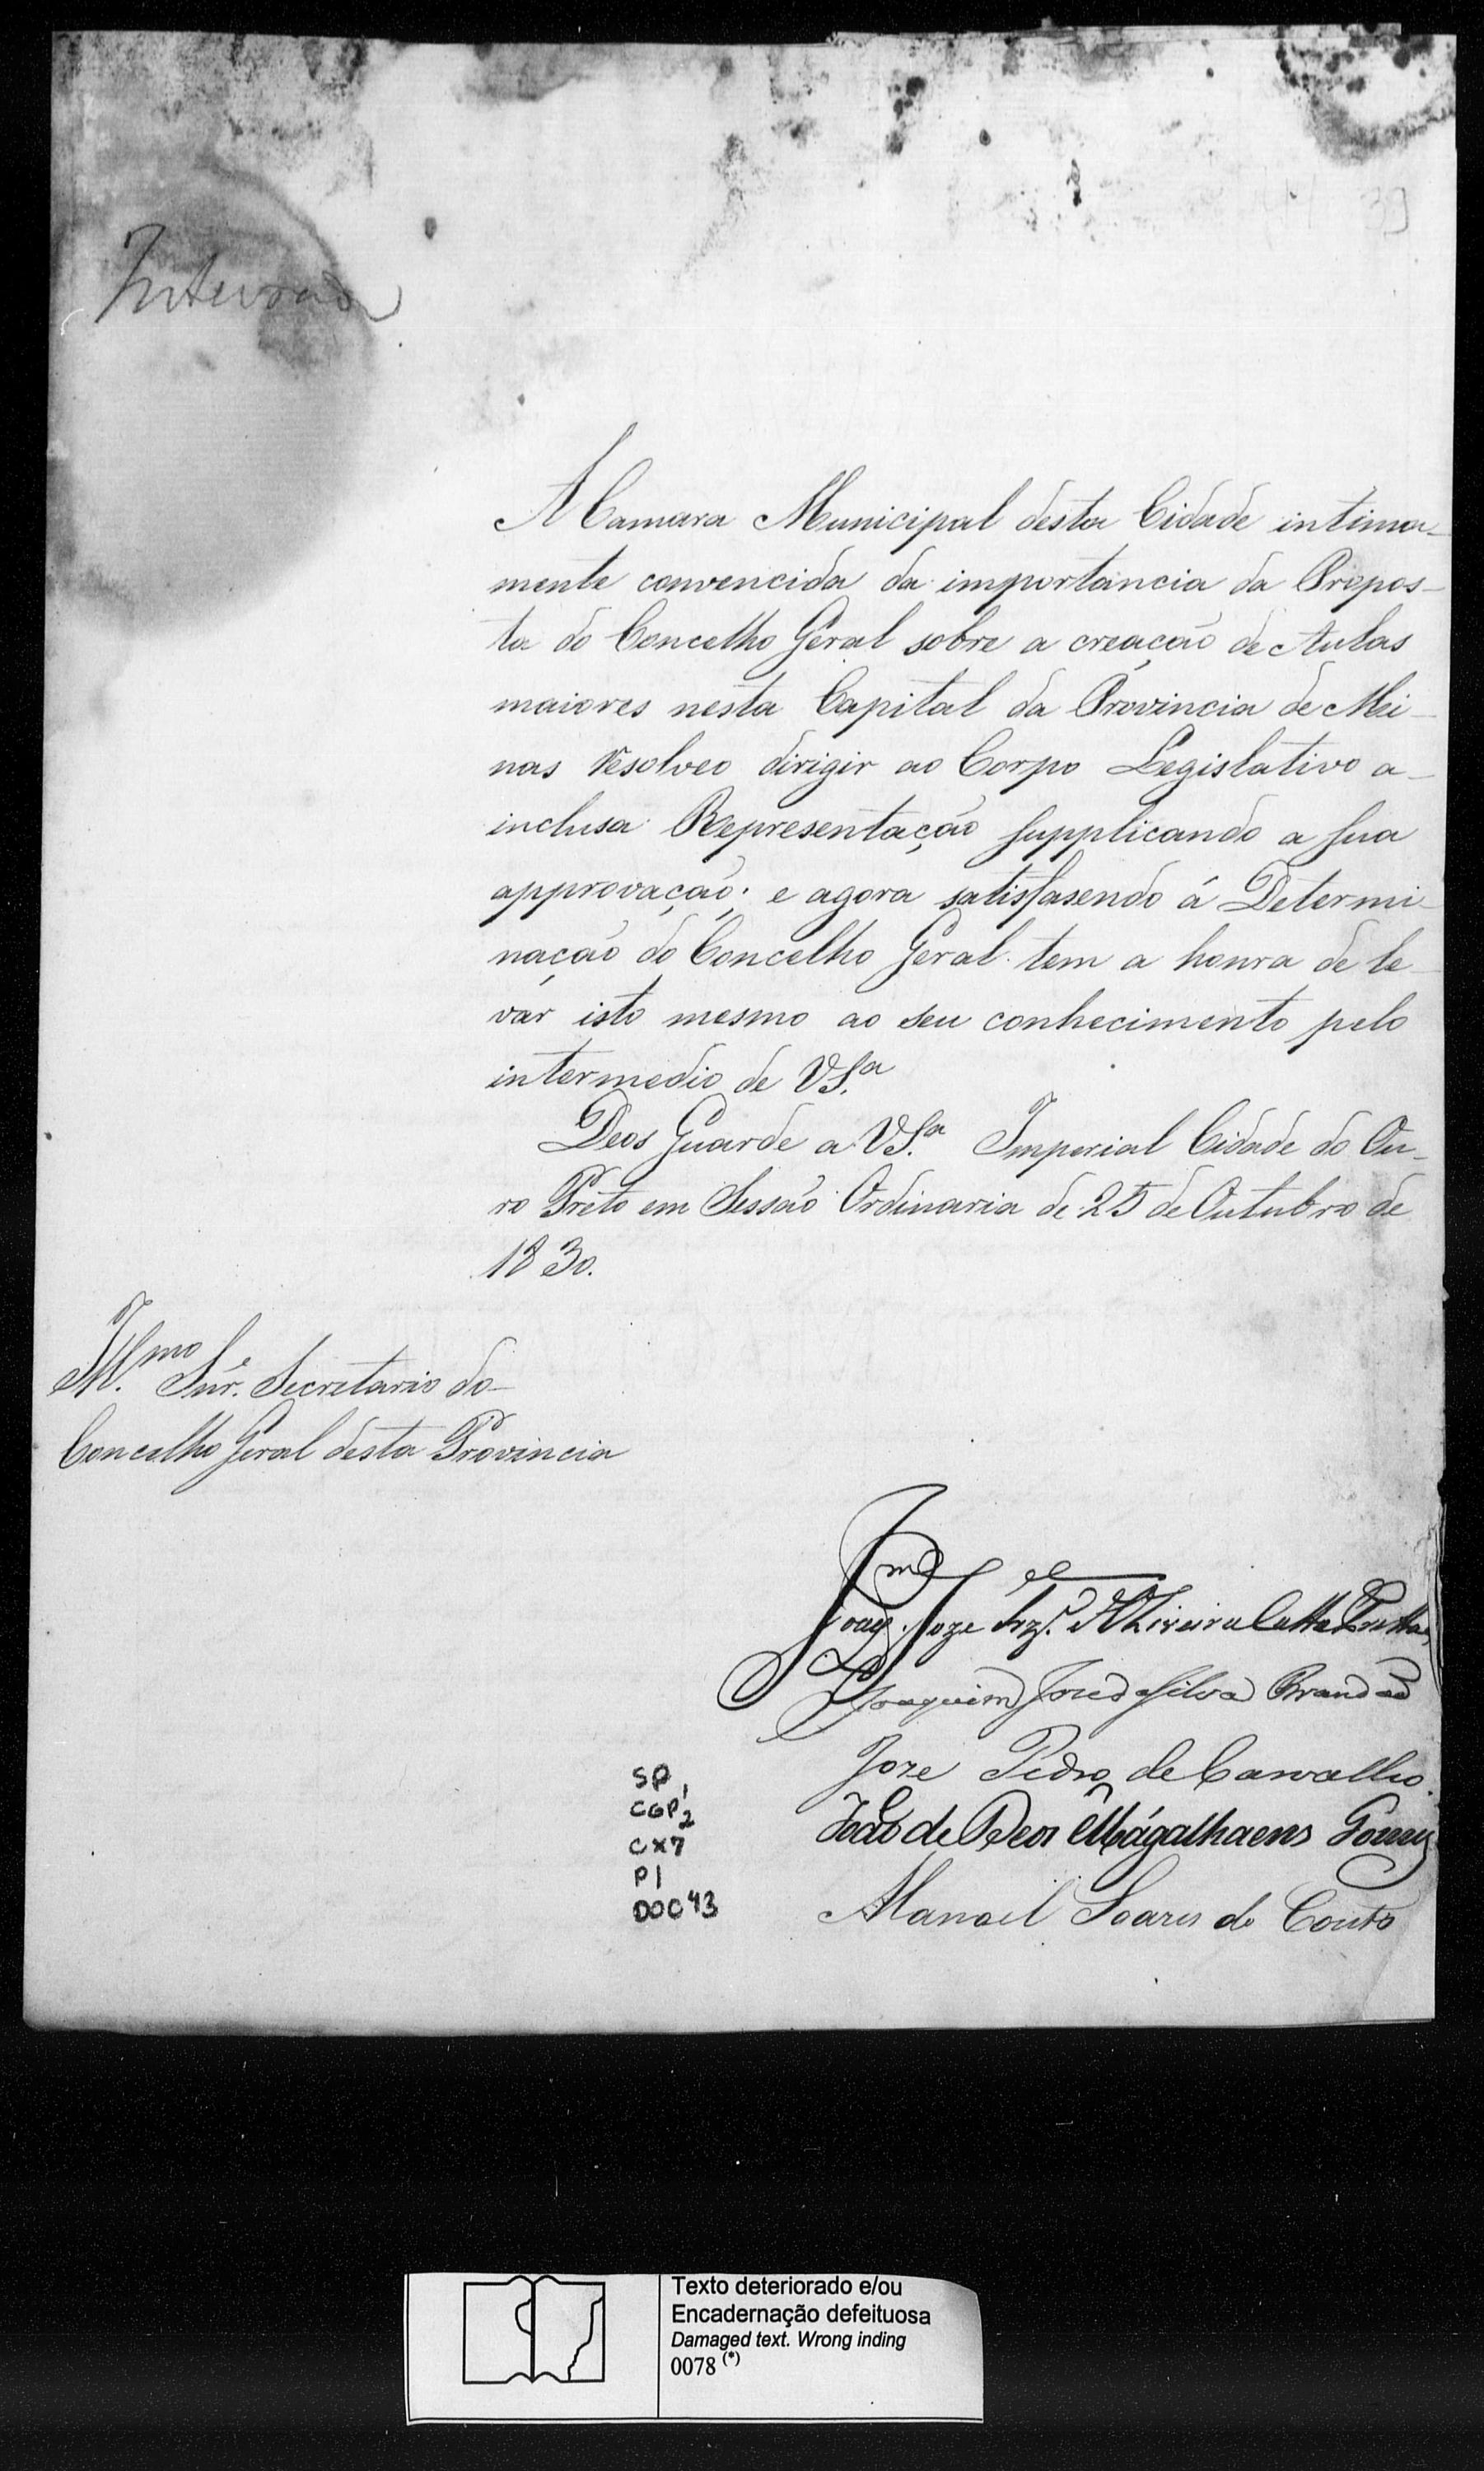 39
Inteirado
A Camara Municipal desta Cidade intima-
mente convencida da importancia da Propos-
ta do Concelho Geral sobre a creação de Aulas
maiores nesta Capital da Provincia de Mi-
nas resolveo dirigir ao Corpo Legislativo a-
inclusa Representação supplicando a sua
approvação: e agora satisfasendo á Determi-
nação do Concelho Geral tem a honra de le-
var isto mesmo ao seu conhecimento pelo
intermedio de VS.ª
Deos Guarde a VS.ª Imperial Cidade do Ou-
ro Preto em Sessão Ordinaria de 25 de Outubro de
1830.
Ill.mo Snr. Secretario do
Concelho Geral desta Provincia
Joaq.m Joze d'Oliveira Catta Pretta
Joaquim José da Silva Brandão
Joze Pedro de Carvalho.
João de Deos Magalhaens Gomes
Manoel Soares do Couto
SP
CGP 1 2
CX7
P1
DOC 43
Texto deteriorado e/ou
Encadernação defeituosa
Damaged text. Wrong inding
0078 (*)